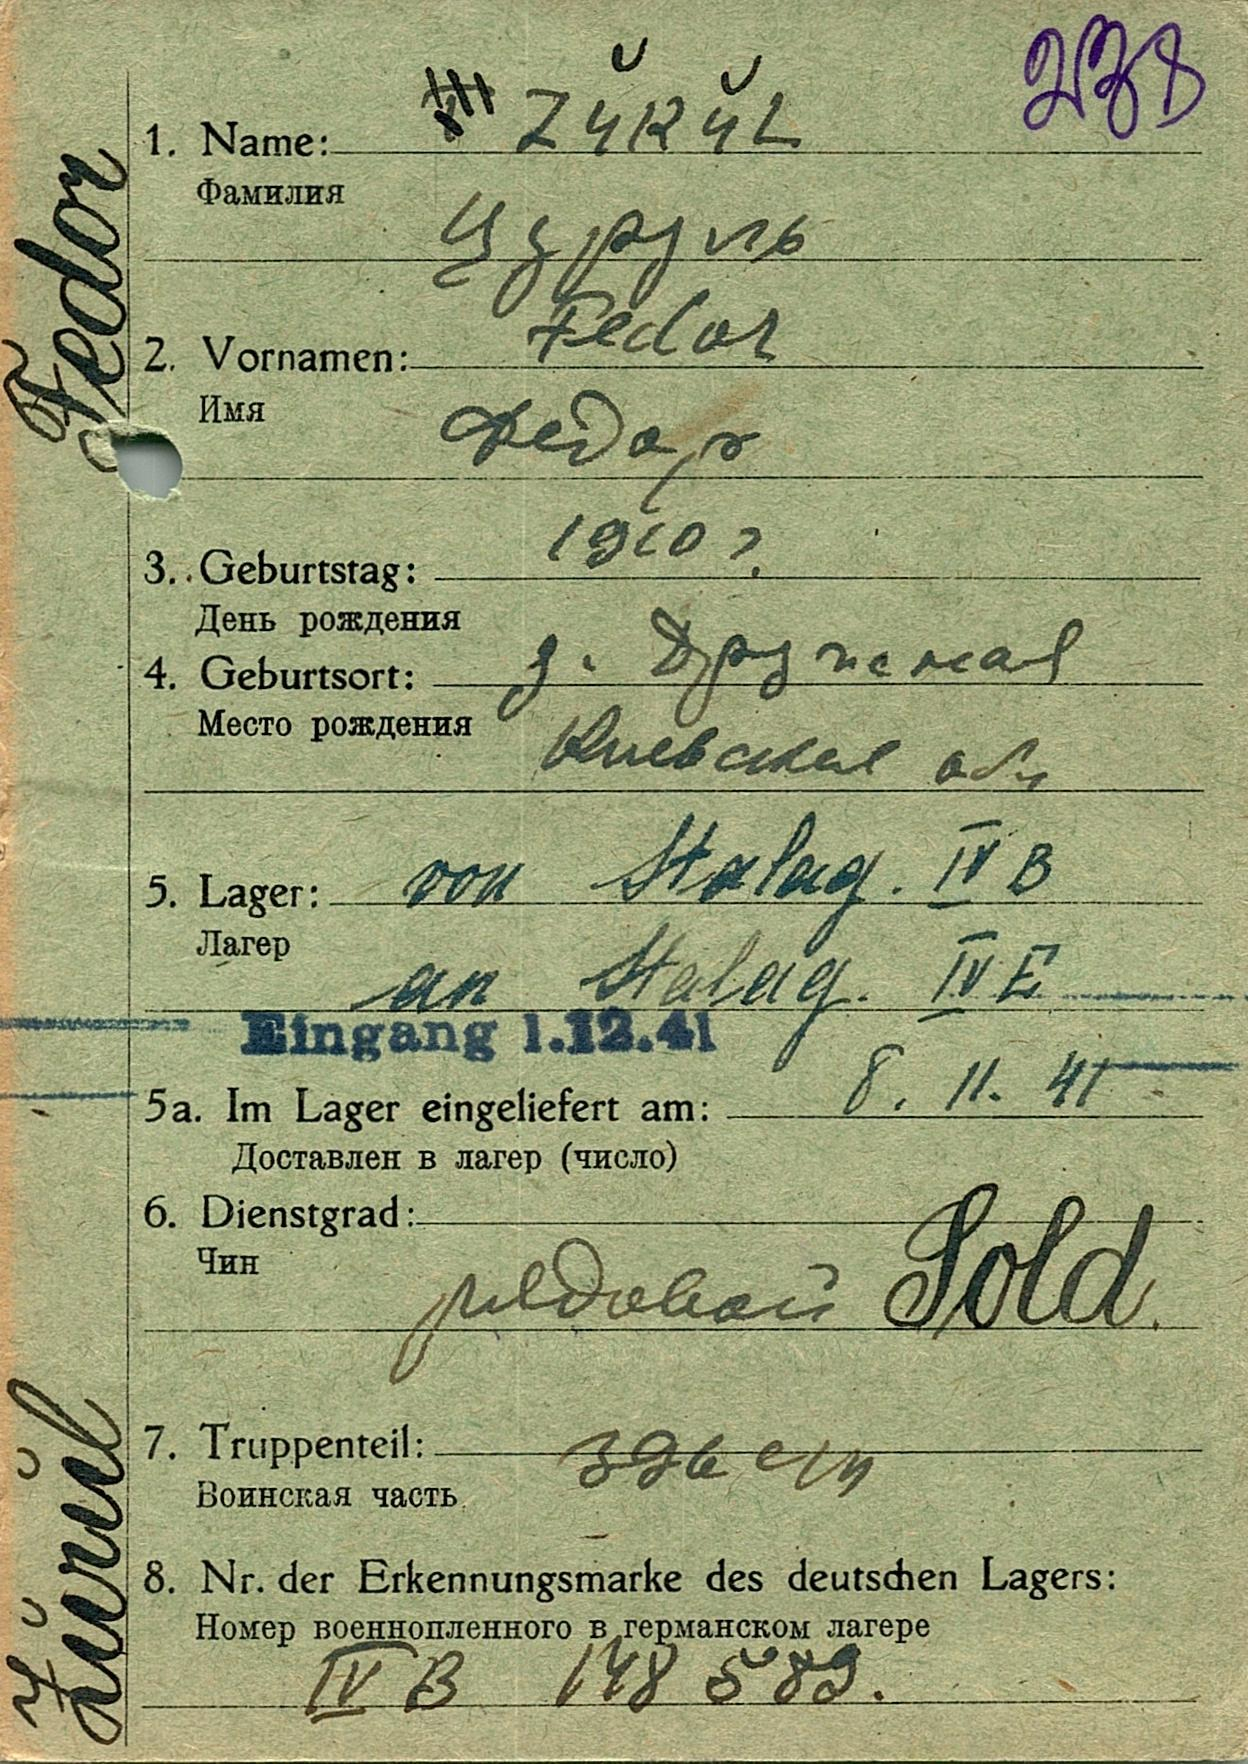 238
1. Name: ZURUL
Фамилия
Цуруль
2. Vornamen: Fedor
Имя
Федор
3. Geburtstag: 1910 г.
День рождения
4. Geburtsort: д.
Место рождения
Киевская обл
5. Lager: von Stalag. IV B
Лагер
an Stalag. IV E
Eingang 1.12.41
5a. Im Lager eingeliefert am: 8. 11. 41
Доставлен в лагер (число)
6. Dienstgrad:
Чин
рядовой Sold.
7. Truppenteil: 396 сп
Воинская часть
8. Nr. der Erkennungsmarke des deutschen Lagers:
Номер военнопленного в германском лагере
IV B 148 589.
Zurul Fedor